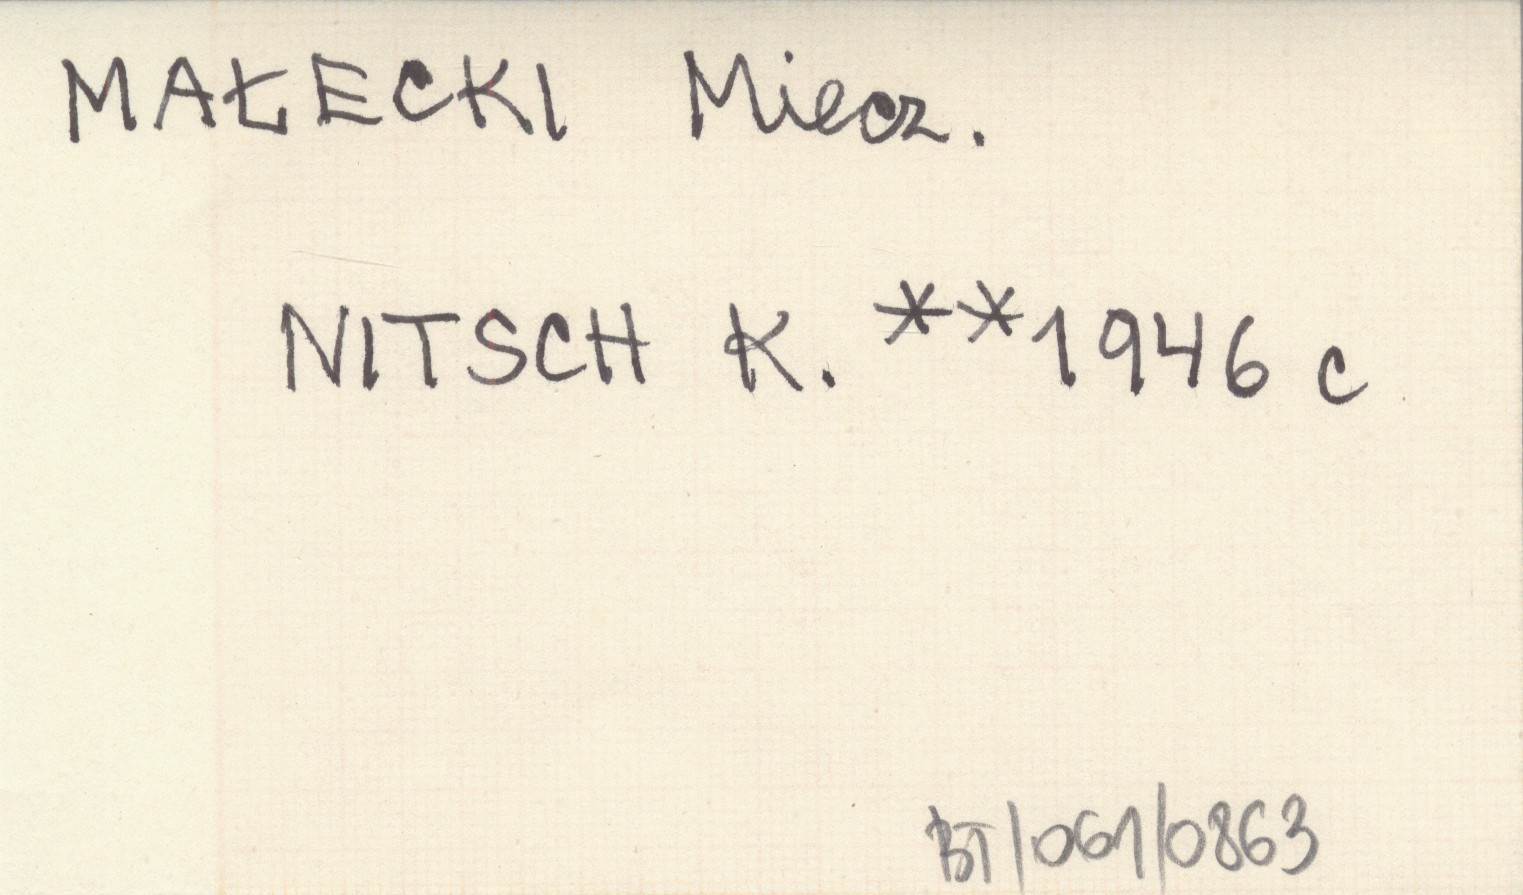 MAŁECKI Miecz.
NITSCH K. **1946 c
BT/061/0863